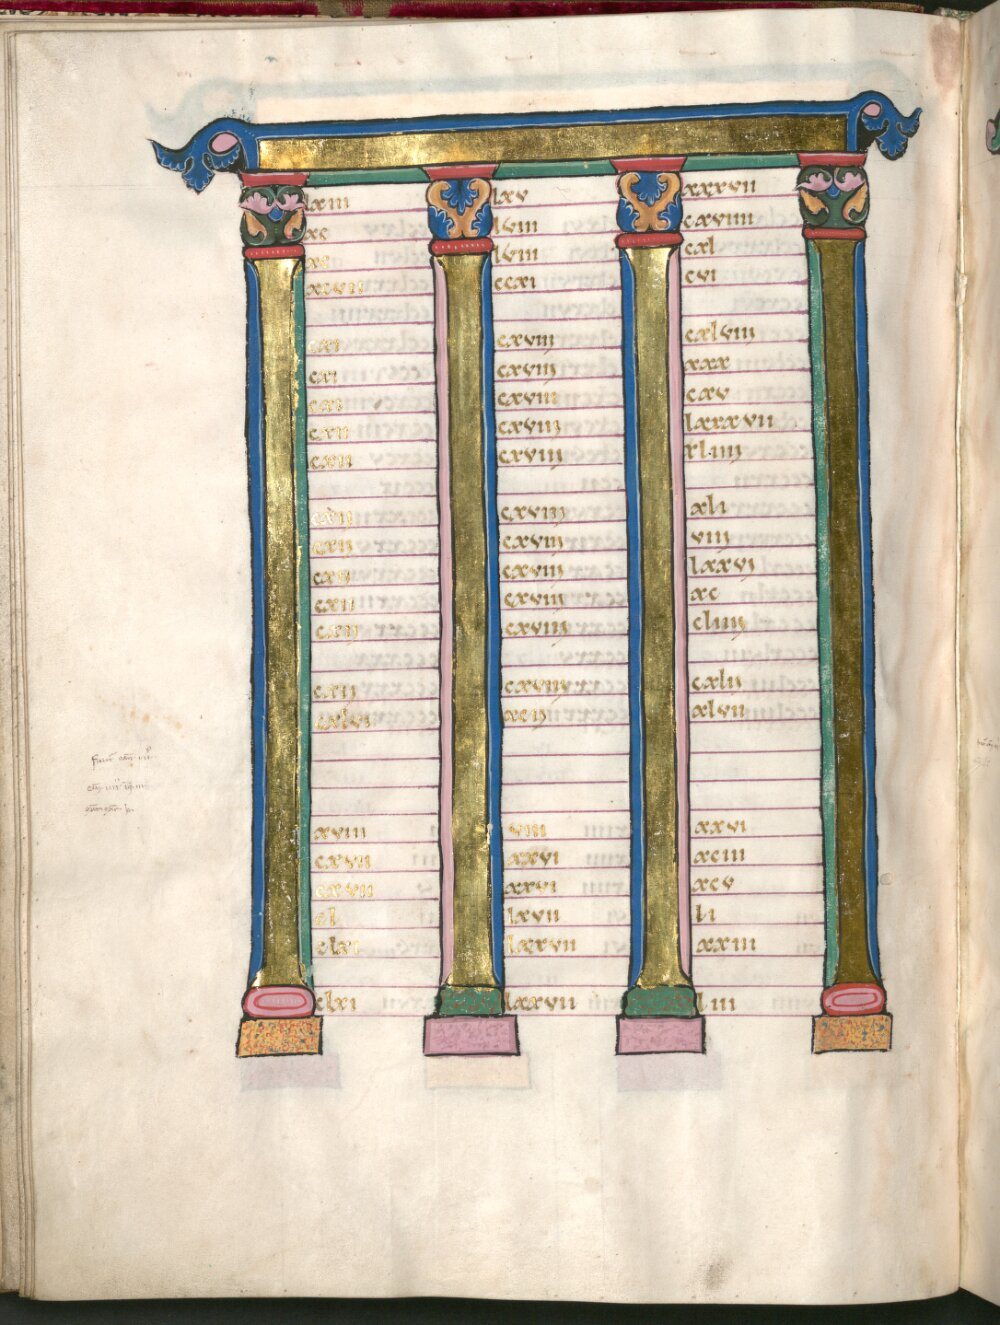 lxiii lxv xxxvii
xc lviii cxviiii
xc lviii cxl
xcvii ccxi cvi
cxi cxviii cxlviii
cxi cxviii xxx
cxi cxviii cxv
cxii cxviii lxxxvii
cxii cxviii xliiii
cxii cxviii xli
cxii cxviii viii
cxii cxviii lxxvi
cxii cxviii xc
cxii cxviii cliiii
cxii cxviiii cxlii
cxlvi xcii xlvii
xviii viii xxvi
cxvii xxvi xciii
cxvii xxvi xcv
cl lxvii li
clxi lxxvii xxiii
clxi lxxvii liii